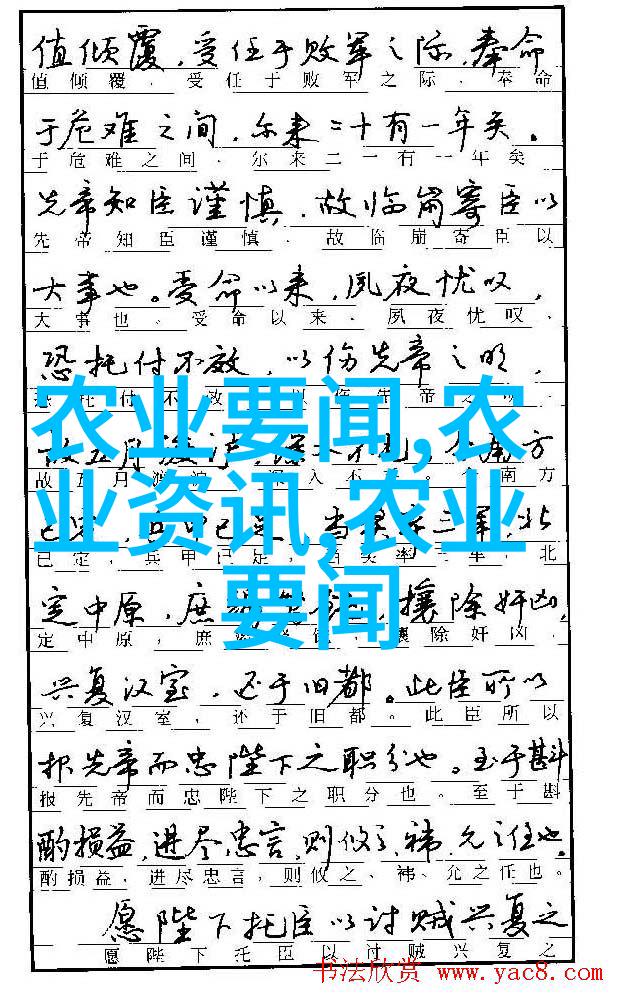 值倾覆，受任于败军之际，奉命
值倾覆，受任于败军之际，奉命
于危难之间，尔来二十有一年矣。
于危难之间，尔来二一有一年矣
先帝知臣谨慎，故临崩寄臣以
先帝知臣谨慎，故临崩寄臣以
大事也。受命以来，夙夜忧叹，
大事也。受命以来，夙夜忧叹，
恐托付不效，以伤先帝之明，
托付不效，以伤先帝之
农业要闻,农
故五月渡泸，深入不毛。今南方
故五月渡泸，深入不。今南方
业资讯,农业
已定，兵甲已足，当奖率三军，北
已定，兵甲已足，当奖率三军，北
要闻
定中原，庶，攘除奸凶，
定中原，庶，攘除奸凶，
兴复汉室，还于旧都。此臣所以
兴复汉室，还于旧都。此臣所以
报先帝而忠陛下之职分也。至于斟
报先帝而忠陛下之职分也。至于斟
酌损益，进尽忠言，则攸之、祎、允之任也。
酌损益，进尽忠言，则攸之、祎、允之任也。
愿陛下托臣以讨贼兴复之
愿陛下托臣以讨贼兴复之
书法欣赏 www.yac8.com